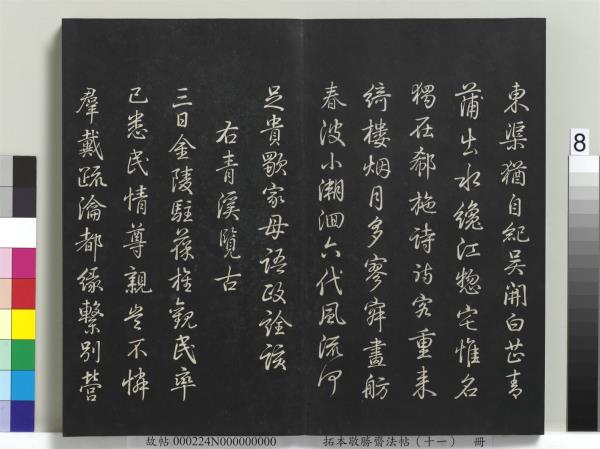 東渠猶自紀吳開白芷青
蒲出水纔江總宅惟名
獨在郗施詩訪客重來
綺樓烟月多寥寂畫舫
春波小溯洄六代風流何
足貴歌家母語政詮該
右青溪覽古
三日金陵駐葆旌觀民率
已悉民情尊親豈不憐
羣戴疏瀹都緣繫別營
8
故帖 000224N000000000
拓本敬勝齋法帖(十一) 冊